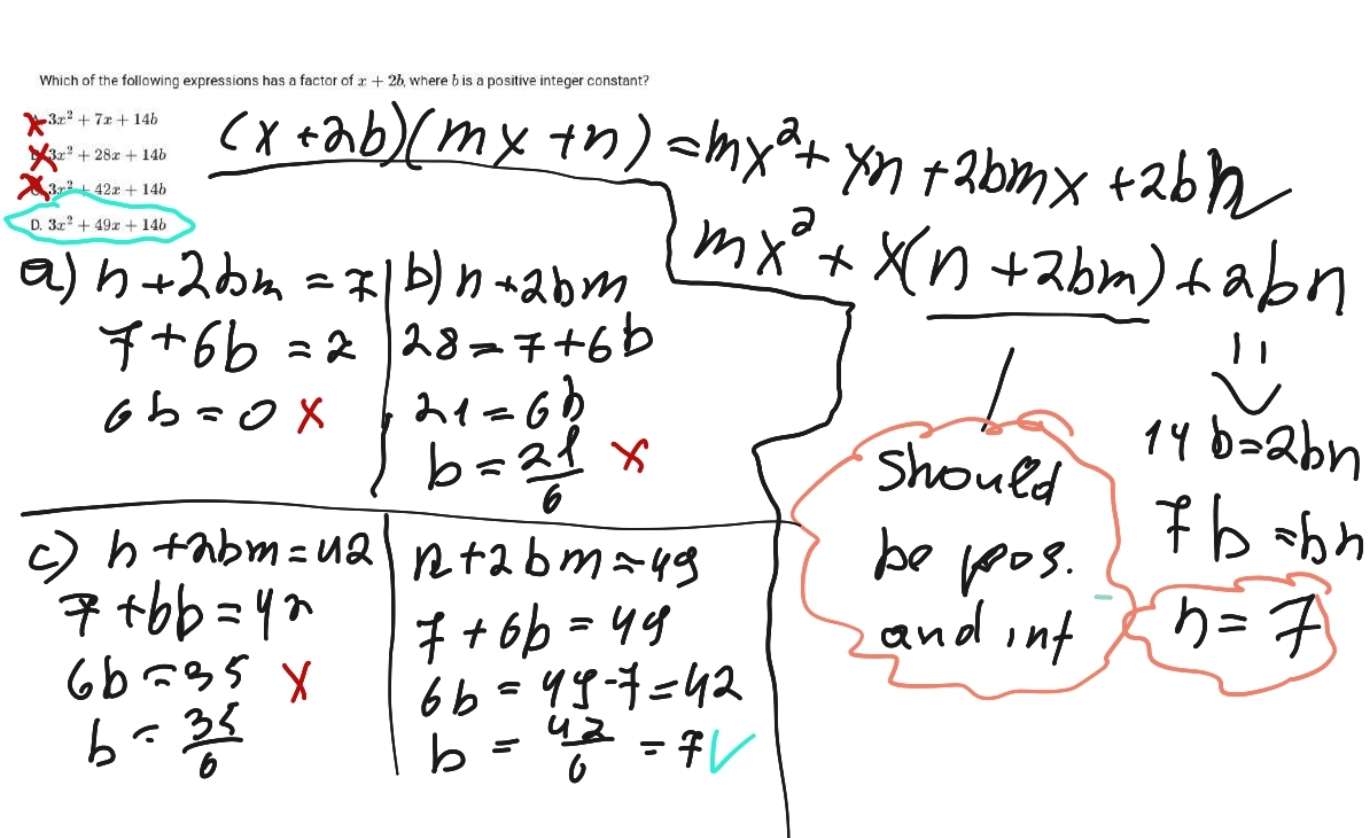 Which of the following expressions has a factor of x + 2b, where b is a positive integer constant?
3x² + 7x + 14b
3x² + 28x + 14b
3x² + 42x + 14b
D. 3x² + 49x + 14b
(x + 2b)(mx + n) = mx² + xn + 2bmx + 2bn
mx² + x(n + 2bm) + 2bn
14b = 2bn
7b = bn
n = 7
should
be pos.
and int
a) n + 2bm = 7
7 + 6b = 2
6b = 0 x
b) n + 2bm
28 = 7 + 6b
21 = 6b
b = 21/6 x
c) n + 2bm = 42
7 + 6b = 42
6b = 35 x
b = 35/6
n + 2bm = 49
7 + 6b = 49
6b = 49 - 7 = 42
b = 42/6 = 7 ✓